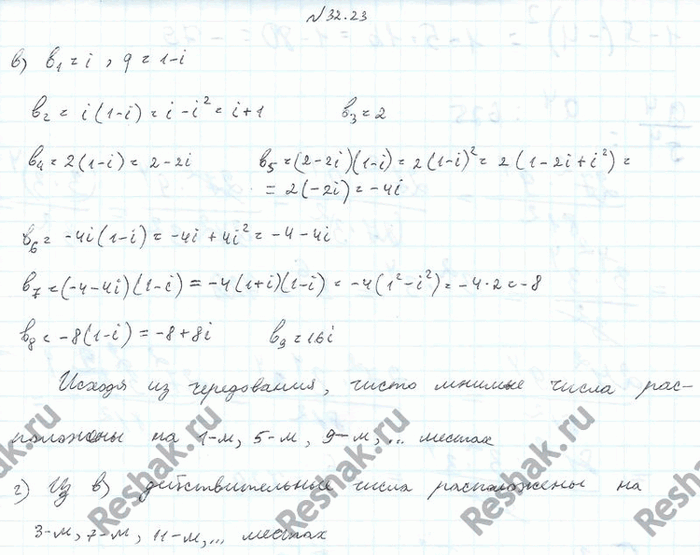 №32.23
в) b₁ = i , q = 1-i
b₂ = i(1-i) = i-i² = i+1 b₃ = 2
b₄ = 2(1-i) = 2-2i b₅ = (2-2i)(1-i) = 2(1-i)² = 2(1-2i+i²) =
= 2(-2i) = -4i
b₆ = -4i(1-i) = -4i+4i² = -4-4i
b₇ = (-4-4i)(1-i) = -4(1+i)(1-i) = -4(1²-i²) = -4·2 = -8
b₈ = -8(1-i) = -8+8i b₉ = 16i
Исходя из чередования, чисто мнимые числа рас-
положены на 1-м, 5-м, 9-м,... местах
г) Из в) действительные числа расположены на
3-м, 7-м, 11-м,... местах
Reshak.ru
Reshak.ru
Reshak.ru
Reshak.ru